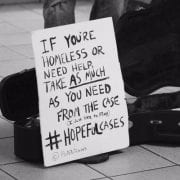 IF YOU'RE
HOMELESS OR
NEED HELP,
TAKE AS MUCH
AS YOU NEED
FROM THE CASE
#HOPEFULCASES